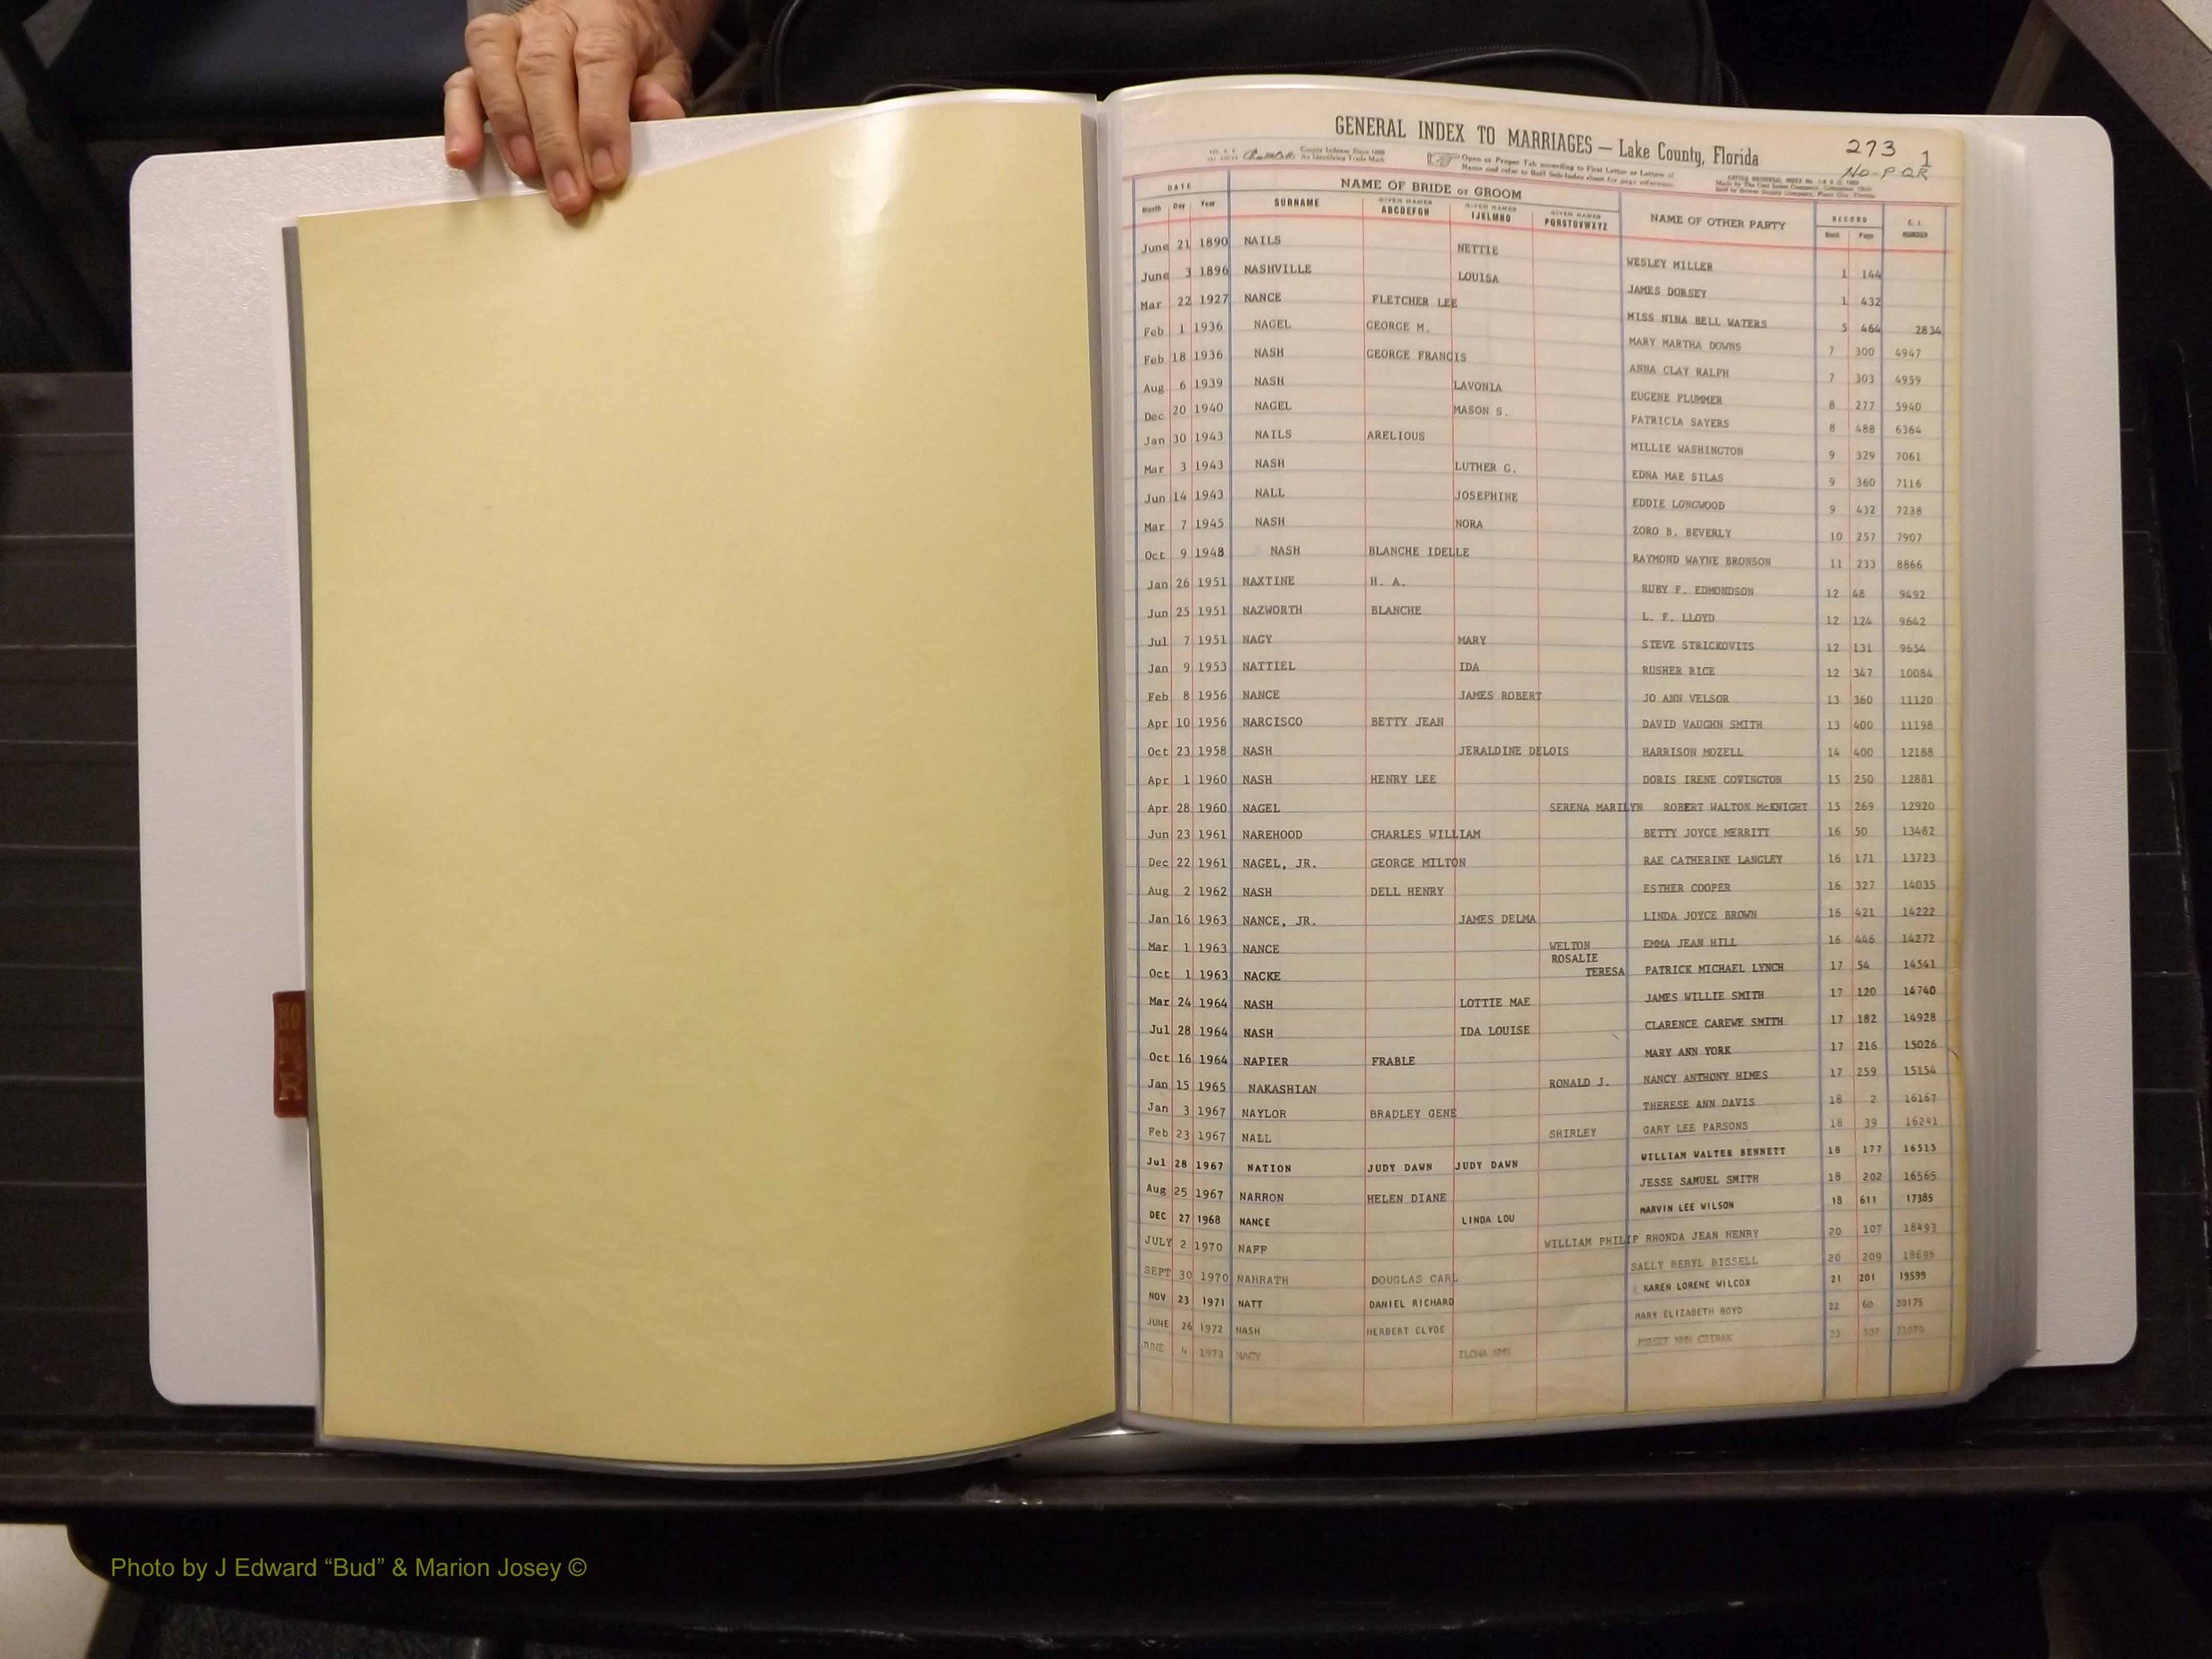 GENERAL INDEX TO MARRIAGES — Lake County, Florida
273 1
NO-PQR
County Indexes Since 1888
An Identifying Trade Mark
Open at Proper Tab according to First Letter or Letters of
DATE NAME OF BRIDE or GROOM NAME OF OTHER PARTY RECORD C. I. NUMBER
Month Day Year SURNAME GIVEN NAMES ABCDEFGH GIVEN NAMES IJKLMNO GIVEN NAMES PQRSTUVWXYZ Book Page
June 21 1890 NAILS NETTIE WESLEY MILLER 1 144
June 3 1896 NASHVILLE LOUISA JAMES DORSEY 1 432
Mar 22 1927 NANCE FLETCHER LEE MISS NINA BELL WATERS 5 464 2834
Feb 1 1936 NAGEL GEORGE M. MARY MARTHA DOWNS 7 300 4947
Feb 18 1936 NASH GEORGE FRANCIS ANNA CLAY RALPH 7 303 4959
Aug 6 1939 NASH LAVONIA EUGENE PLUMMER 8 277 5940
Dec 20 1940 NAGEL MASON S. PATRICIA SAYERS 8 488 6364
Jan 30 1943 NAILS ARELIOUS MILLIE WASHINGTON 9 329 7061
Mar 3 1943 NASH LUTHER G. EDNA MAE SILAS 9 360 7116
Jun 14 1943 NALL JOSEPHINE EDDIE LONGWOOD 9 432 7238
Mar 7 1945 NASH NORA ZORO B. BEVERLY 10 257 7907
Oct 9 1948 NASH BLANCHE IDELLE RAYMOND WAYNE BRONSON 11 233 8866
Jan 26 1951 NAXTINE H. A. RUBY F. EDMONDSON 12 48 9492
Jun 25 1951 NAZWORTH BLANCHE L. F. LLOYD 12 124 9642
Jul 7 1951 NAGY MARY STEVE STRICKOVITS 12 131 9654
Jan 9 1953 NATTIEL IDA RUSHER RICE 12 347 10084
Feb 8 1956 NANCE JAMES ROBERT JO ANN VELSOR 13 360 11120
Apr 10 1956 NARCISCO BETTY JEAN DAVID VAUGHN SMITH 13 400 11198
Oct 23 1958 NASH JERALDINE DELOIS HARRISON MOZELL 14 400 12188
Apr 1 1960 NASH HENRY LEE DORIS IRENE COVINGTON 15 250 12881
Apr 28 1960 NAGEL SERENA MARILYN ROBERT WALTON McKNIGHT 15 269 12920
Jun 23 1961 NAREHOOD CHARLES WILLIAM BETTY JOYCE MERRITT 16 50 13482
Dec 22 1961 NAGEL, JR. GEORGE MILTON RAE CATHERINE LANGLEY 16 171 13723
Aug 2 1962 NASH DELL HENRY ESTHER COOPER 16 327 14035
Jan 16 1963 NANCE, JR. JAMES DELMA LINDA JOYCE BROWN 16 421 14222
Mar 1 1963 NANCE WELTON EMMA JEAN HILL 16 446 14272
ROSALIE
Oct 1 1963 NACKE TERESA PATRICK MICHAEL LYNCH 17 54 14541
Mar 24 1964 NASH LOTTIE MAE JAMES WILLIE SMITH 17 120 14740
Jul 28 1964 NASH IDA LOUISE CLARENCE CAREWE SMITH 17 182 14928
Oct 16 1964 NAPIER FRABLE MARY ANN YORK 17 216 15026
Jan 15 1965 NAKASHIAN RONALD J. NANCY ANTHONY HIMES 17 259 15154
Jan 3 1967 NAYLOR BRADLEY GENE THERESE ANN DAVIS 18 2 16167
Feb 23 1967 NALL SHIRLEY GARY LEE PARSONS 18 39 16241
Jul 28 1967 NATION JUDY DAWN JUDY DAWN WILLIAM WALTER BENNETT 18 177 16515
Aug 25 1967 NARRON HELEN DIANE JESSE SAMUEL SMITH 18 202 16565
DEC 27 1968 NANCE LINDA LOU MARVIN LEE WILSON 18 611 17385
JULY 2 1970 NAFF WILLIAM PHILIP RHONDA JEAN HENRY 20 107 18493
SEPT 30 1970 NAHRATH DOUGLAS CARL SALLY BERYL BISSELL 20 209 18696
NOV 23 1971 NATT DANIEL RICHARD KAREN LORENE WILCOX 21 201 19599
JUNE 26 1972 NASH HERBERT CLYDE MARY ELIZABETH BOYD 22 60 20175
JUNE 4 1973 NAGY ILONA 23
Photo by J Edward “Bud” & Marion Josey ©